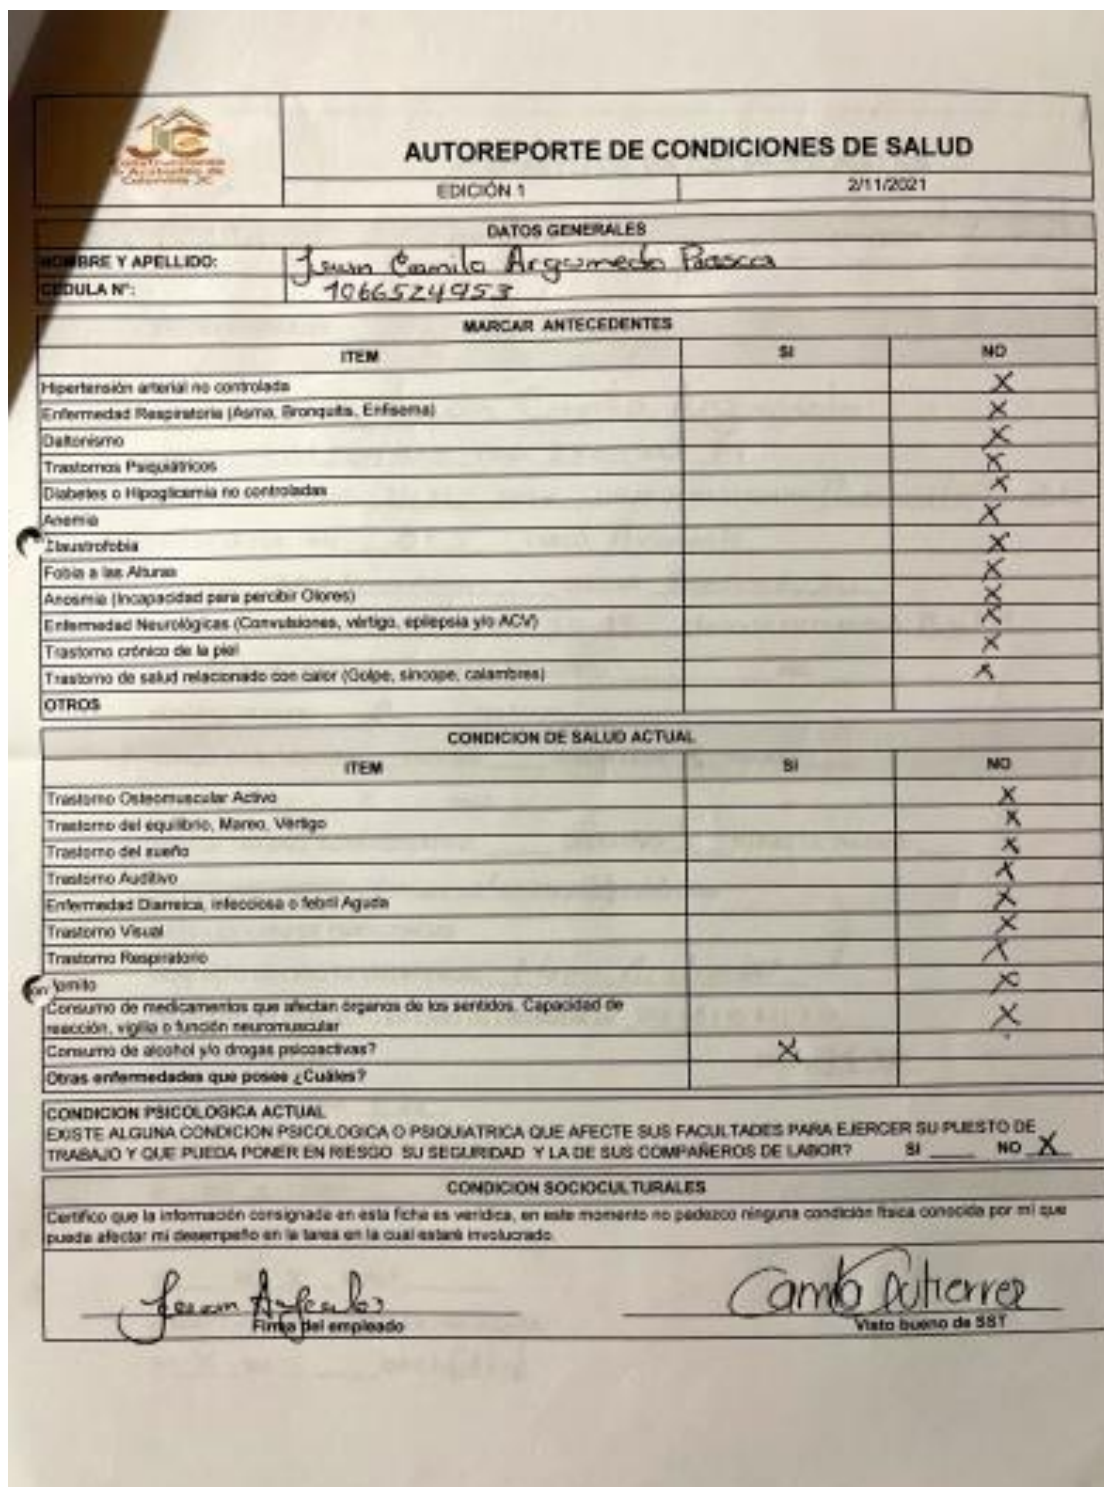 Construcciones
y Acabados de
Colombia JC
AUTOREPORTE DE CONDICIONES DE SALUD
EDICIÓN 1 2/11/2021
DATOS GENERALES
NOMBRE Y APELLIDO: Camilo Argumedo
CEDULA N°: 1066524953
MARCAR ANTECEDENTES
ITEM SI NO
Hipertensión arterial no controlada X
Enfermedad Respiratoria (Asma, Bronquitis, Enfisema) X
Daltonismo X
Trastornos Psiquiátricos X
Diabetes o Hipoglicemia no controladas X
Anemia X
Claustrofobia X
Fobia a las Alturas X
Anosmia (Incapacidad para percibir Olores) X
Enfermedad Neurológicas (Convulsiones, vértigo, epilepsia y/o ACV) X
Trastorno crónico de la piel X
Trastorno de salud relacionado con calor (Golpe, síncope, calambres) X
OTROS
CONDICION DE SALUD ACTUAL
ITEM SI NO
Trastorno Osteomuscular Activo X
Trastorno del equilibrio, Mareo, Vértigo X
Trastorno del sueño X
Trastorno Auditivo X
Enfermedad Diarreica, infecciosa o febril Aguda X
Trastorno Visual X
Trastorno Respiratorio X
Vomito X
Consumo de medicamentos que afectan órganos de los sentidos. Capacidad de
reacción, vigilia o función neuromuscular X
Consumo de alcohol y/o drogas psicoactivas? X
Otras enfermedades que posee ¿Cuáles?
CONDICION PSICOLOGICA ACTUAL
EXISTE ALGUNA CONDICION PSICOLOGICA O PSIQUIATRICA QUE AFECTE SUS FACULTADES PARA EJERCER SU PUESTO DE
TRABAJO Y QUE PUEDA PONER EN RIESGO SU SEGURIDAD Y LA DE SUS COMPAÑEROS DE LABOR? SI ____ NO X
CONDICION SOCIOCULTURALES
Certifico que la información consignada en esta ficha es verídica, en este momento no padezco ninguna condición física conocida por mí que
pueda afectar mi desempeño en la tarea en la cual estaré involucrado.
Camilo Gutierrez
Firma del empleado Visto bueno de SST